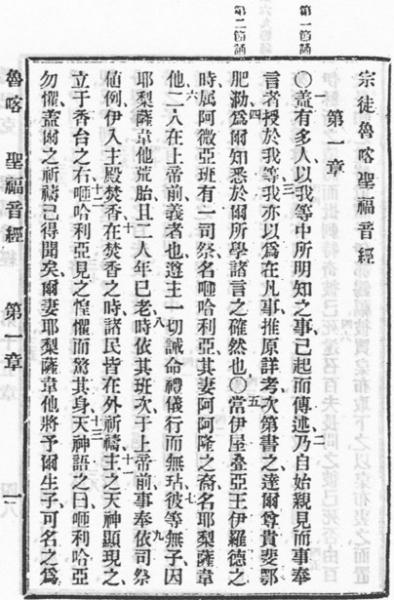 第一節誦
第二節誦
宗徒魯喀聖福音經
第一章
〇一蓋有多人、以我等中所明知之事、已起而傳述、二乃自始親見而事奉
言者、授於我等、三我亦以爲在凡事推原詳考、次第書之、達爾尊貴斐鄂
肥泐、四爲爾知悉於爾所學諸言之確然也、〇五當伊屋疊亞王伊羅德之
時、属阿微亞班、有一司祭、名咂哈利亞、其妻阿阿隆之裔、名耶梨薩韋
他、六二人在上帝前義者也、遵主一切誡命禮儀、行而無玷、七彼等無子、因
耶梨薩韋他荒胎、且二人年已老、八時依其班次、于上帝前事奉、九依司祭
値例、伊入主殿焚香、十在焚香之時、諸民皆在外祈禱、十一主之天神顯現之、
立于香台之右、十二咂哈利亞見之、惶懼而驚其身、十三天神語之曰、咂哈利亞
勿懼、蓋爾之祈禱已得聞矣、爾妻耶梨薩韋他、將予爾生子、可名之爲
魯喀 聖福音經 第一章 一